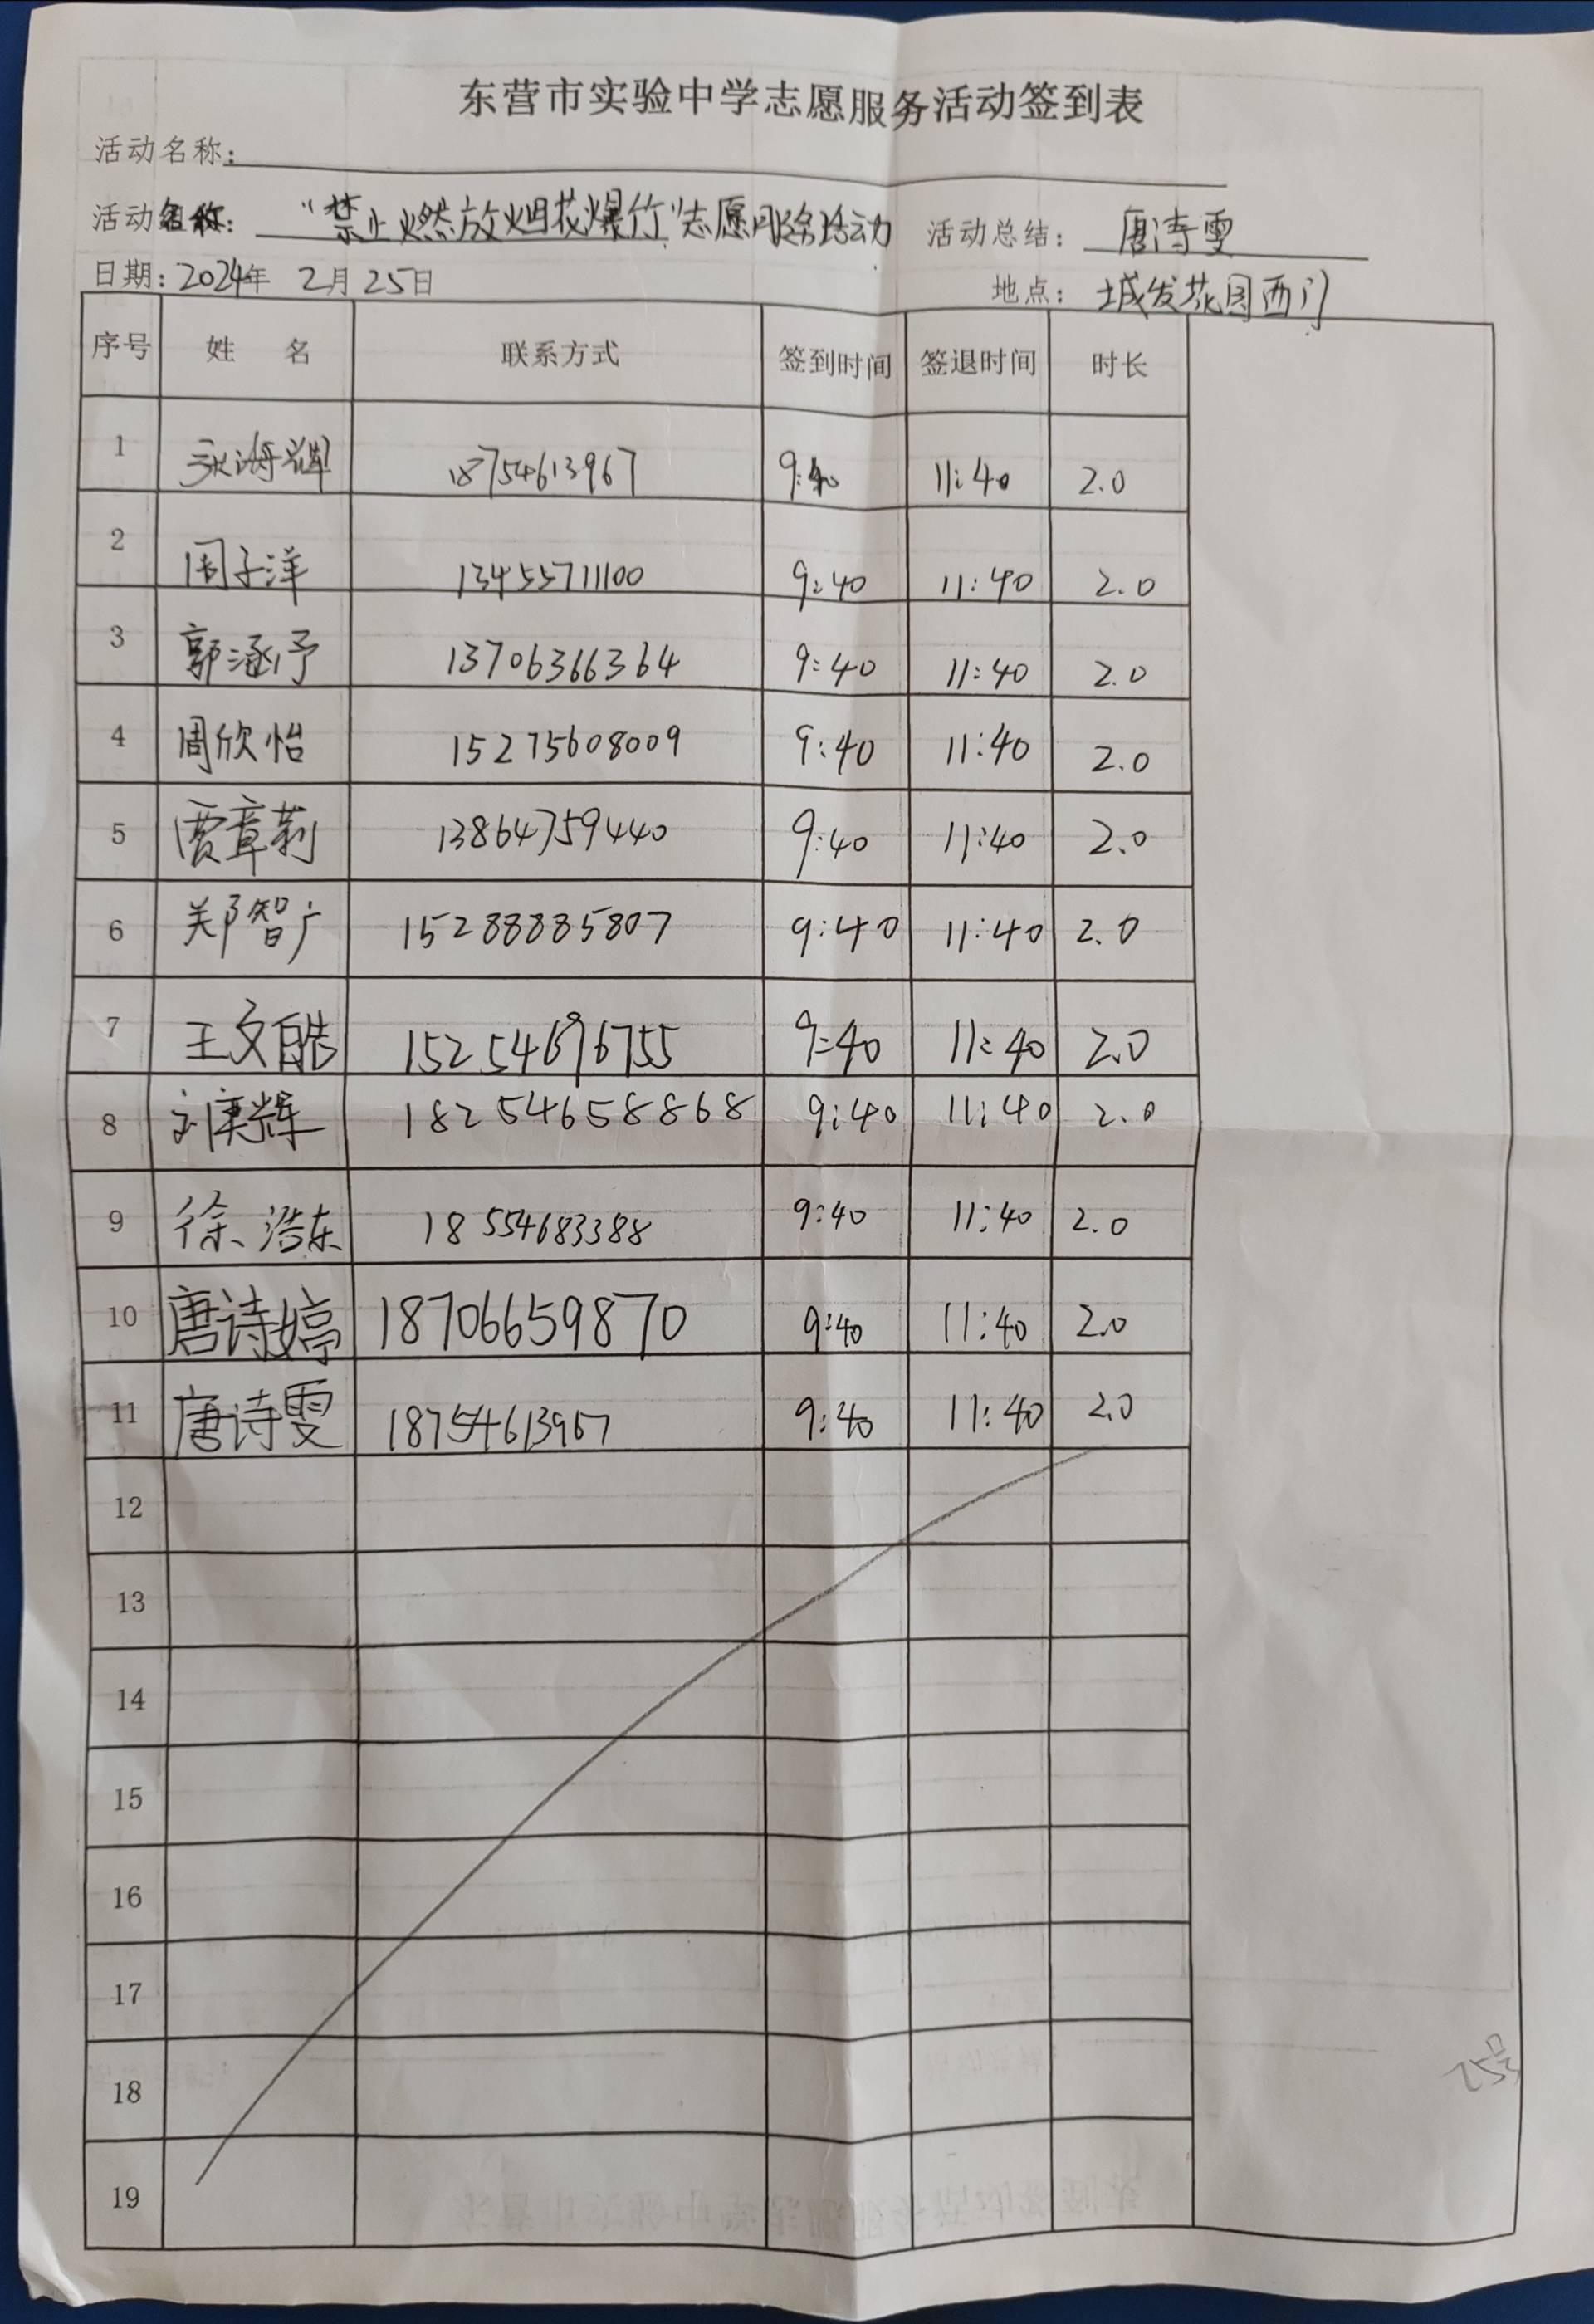 东营市实验中学志愿服务活动签到表
活动名称:
活动名称: “禁止燃放烟花爆竹”志愿服务活动 活动总结: 唐诗雯
日期: 2024年 2月25日 地点: 城发花园西门
序号 姓 名 联系方式 签到时间 签退时间 时长
1 海辉 18754613967 9:40 11:40 2.0
2 周子洋 13455711100 9:40 11:40 2.0
3 郭涵予 13706366364 9:40 11:40 2.0
4 周欣怡 15275608009 9:40 11:40 2.0
5 贾章莉 13864759440 9:40 11:40 2.0
6 郑智广 15288885807 9:40 11:40 2.0
7 王文皓 15254696755 9:40 11:40 2.0
8 刘庚辉 18254658868 9:40 11:40 2.0
9 徐浩东 18554683388 9:40 11:40 2.0
10 唐诗婷 18706659870 9:40 11:40 2.0
11 唐诗雯 18754613967 9:40 11:40 2.0
12
13
14
15
16
17
18
19
25号